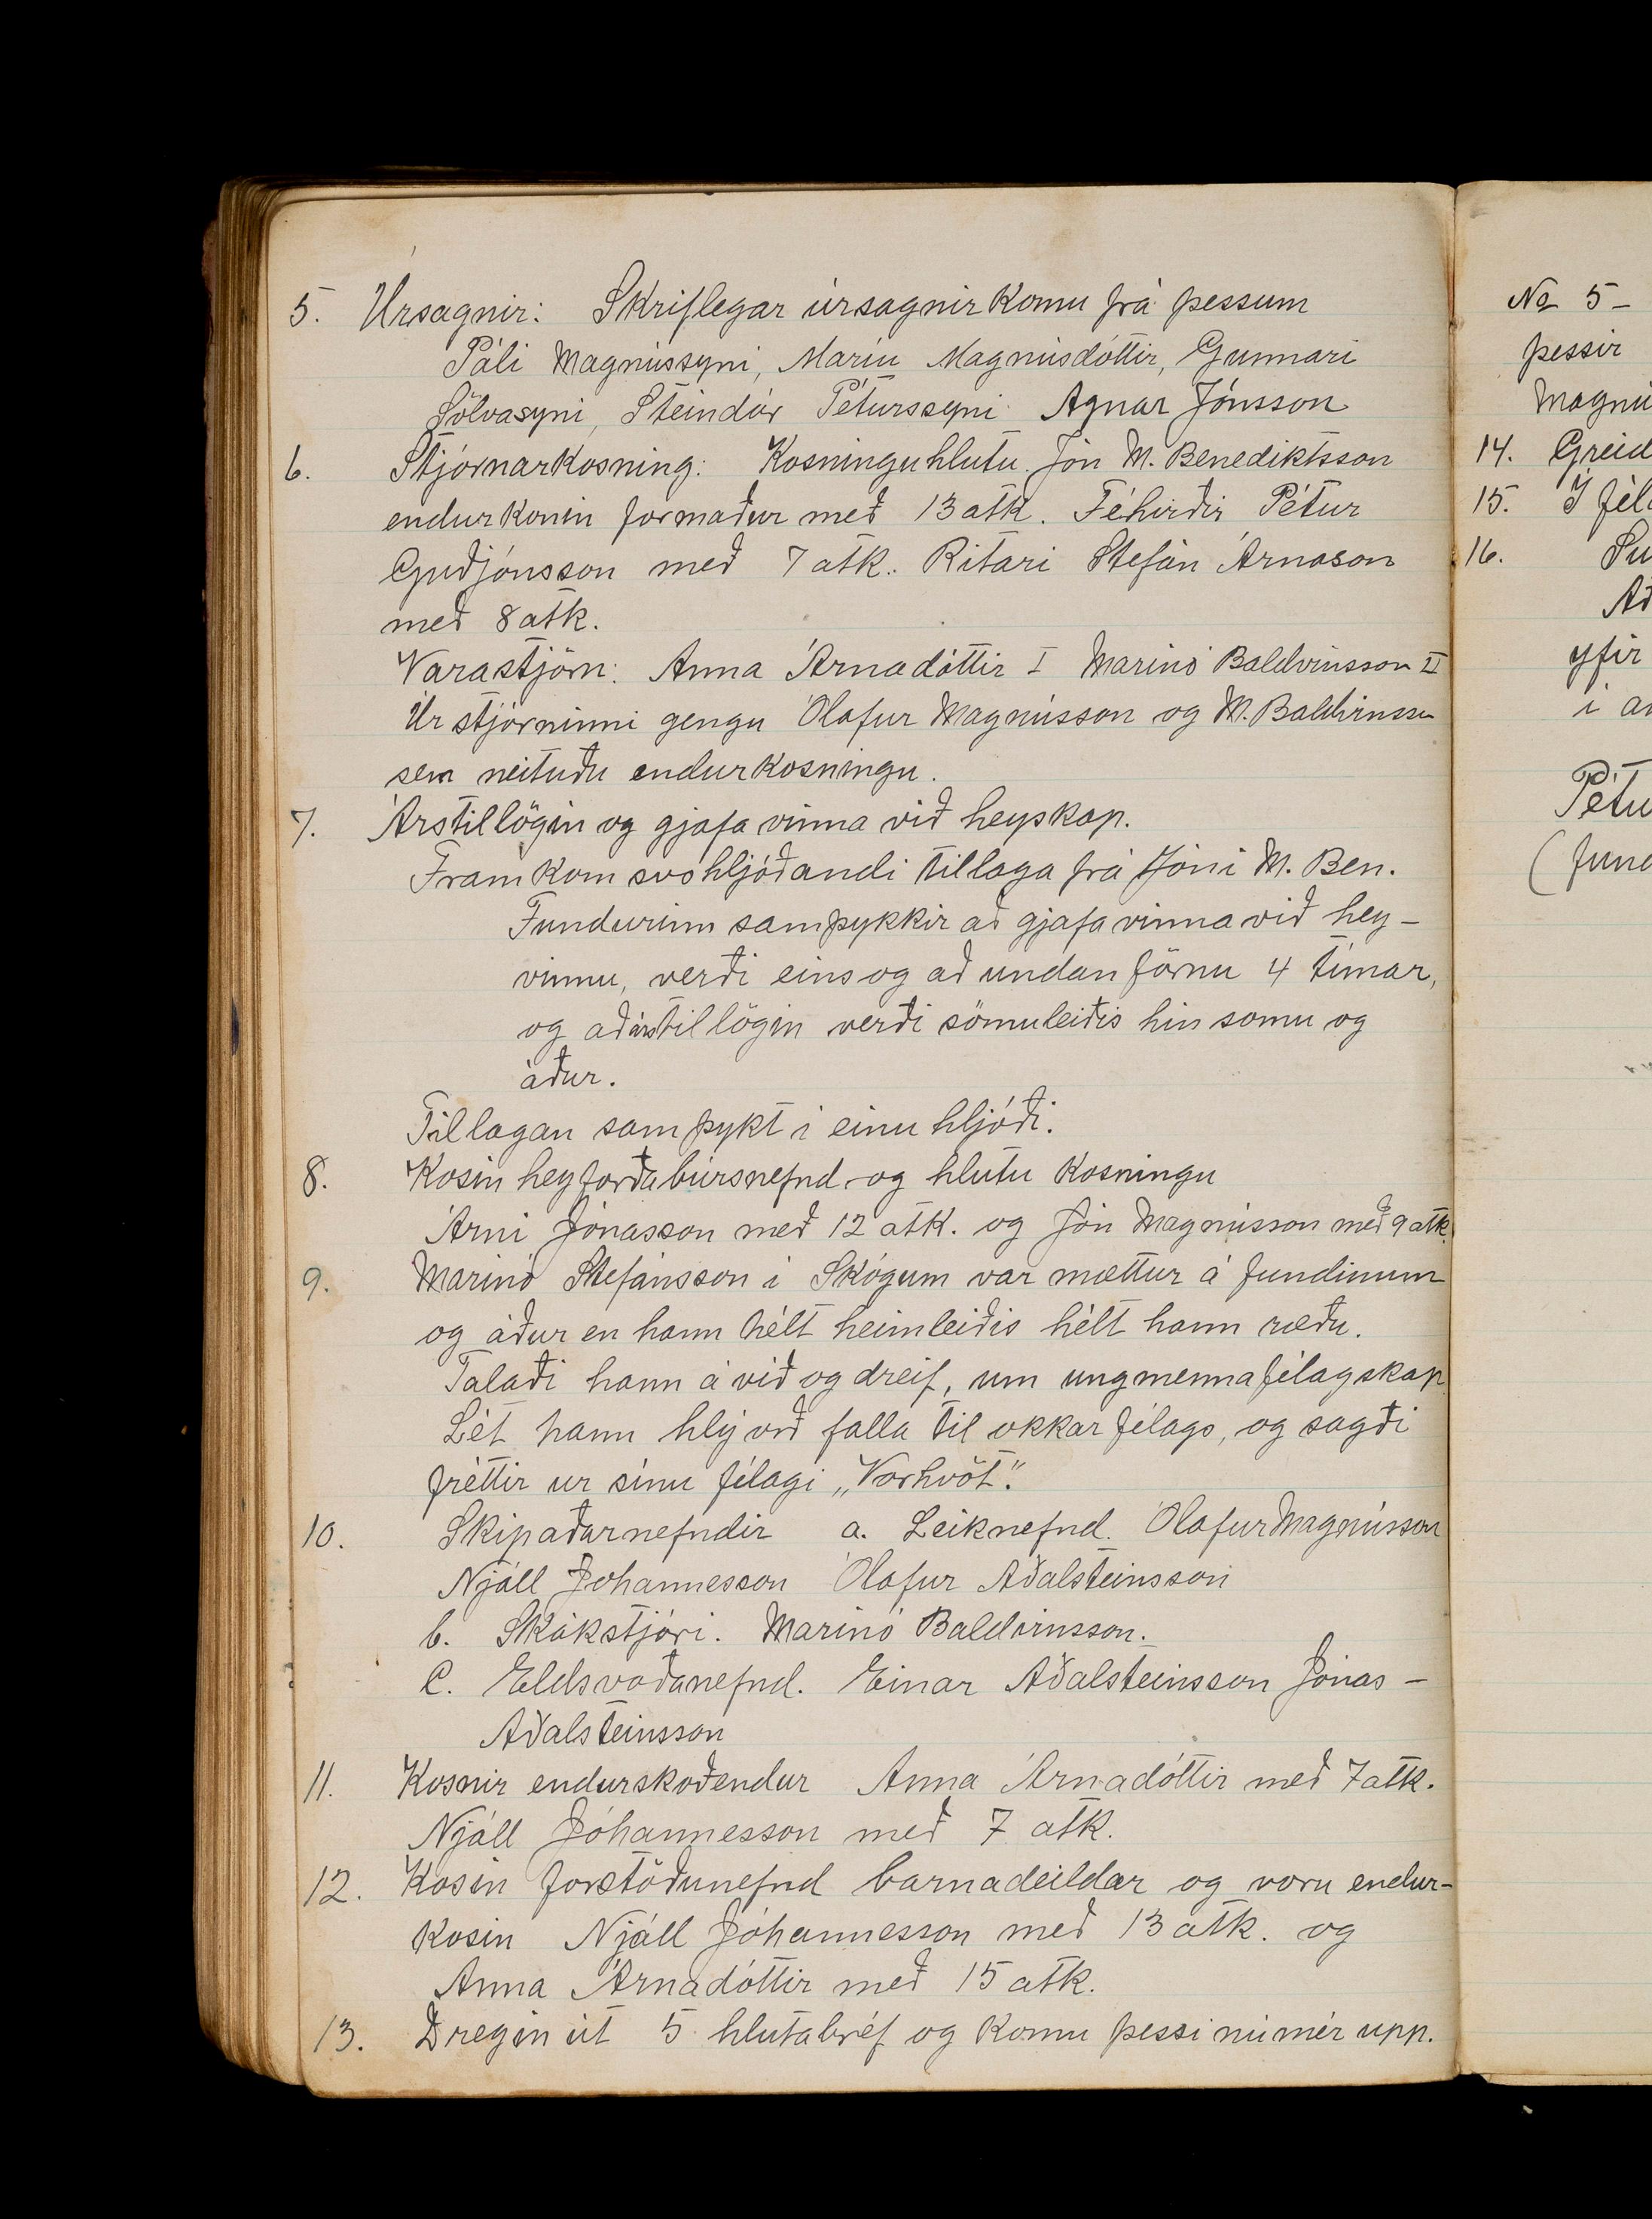 5. Úrsagnir: Skriflegar úrsagnir komu frá þessum
Páli Magnússyni, Maríu Magnúsdóttir, Gunnari
Sölvasyni, Steindór Péturssyni Agnar Jónsson
6. Stjórnarkosning: Kosninguhlutu. Jón M. Benediktsson
endurkonin formaður með 13 atk. Féhirðir Pétur
Guðjónsson með 7 atk. Ritari Stefán Árnason
með 8 atk.
Varastjórn: Anna Árnadóttir I Marinó Baldvinsson II
Úr stjórninni gengu Ólafur Magnússon og M. Baldvinsson
sem neituðu endurkosningu.
7. Árstillögin og gjafa vinna við heyskap.
Fram kom svohljóðandi tillaga frá Jóni M. Ben.
Fundurinn samþykkir að gjafa vinna við hey-
vinnu, verði eins og að undan förnu 4 tímar,
og að árstillögin verði sömuleiðis hin somu og
áður.
Tillagan samþykt í einu hljóði.
8. Kosin heyforðabúrsnefnd og hlutu kosningu
Árni Jónasson með 12 atk. og Jón Magnússon með 9 atk.
9. Marinó Stefánsson í Skógum var mættur á fundinum
og áður en hann hélt heimleiðis hélt hann ræðu.
Talaði hann á við og dreif, um ungmennafélagskap
Lét hann hlý orð falla til okkar félags, og sagði
fréttir ur sínu félagi „Vorhvöt".
10. Skipaðarnefndir a. Leiknefnd. Ólafur Magnússon
Njáll Johannesson Ólafur Aðalsteinsson
b. Skákstjóri. Marinó Baldvinsson.
C. Eldsvoðanefnd. Einar Aðalsteinsson Jónas -
Aðalsteinsson
11. Kosnir endurskoðendur Anna Árnadóttir með 7 atk.
Njáll Jóhannesson með 7 atk.
12. Kosin forstöðunefnd barnadeildar og voru endur-
kosin Njáll Jóhannesson með 13 atk. og
Anna Árnadóttir með 15 atk.
13. Dregin út 5 hlutabréf og komu þessi númér upp.
No 5 -
þessir
Magnú
14. Greid
15. Í fél
16. Su
Að
yfir
í a
Pétu
(fund